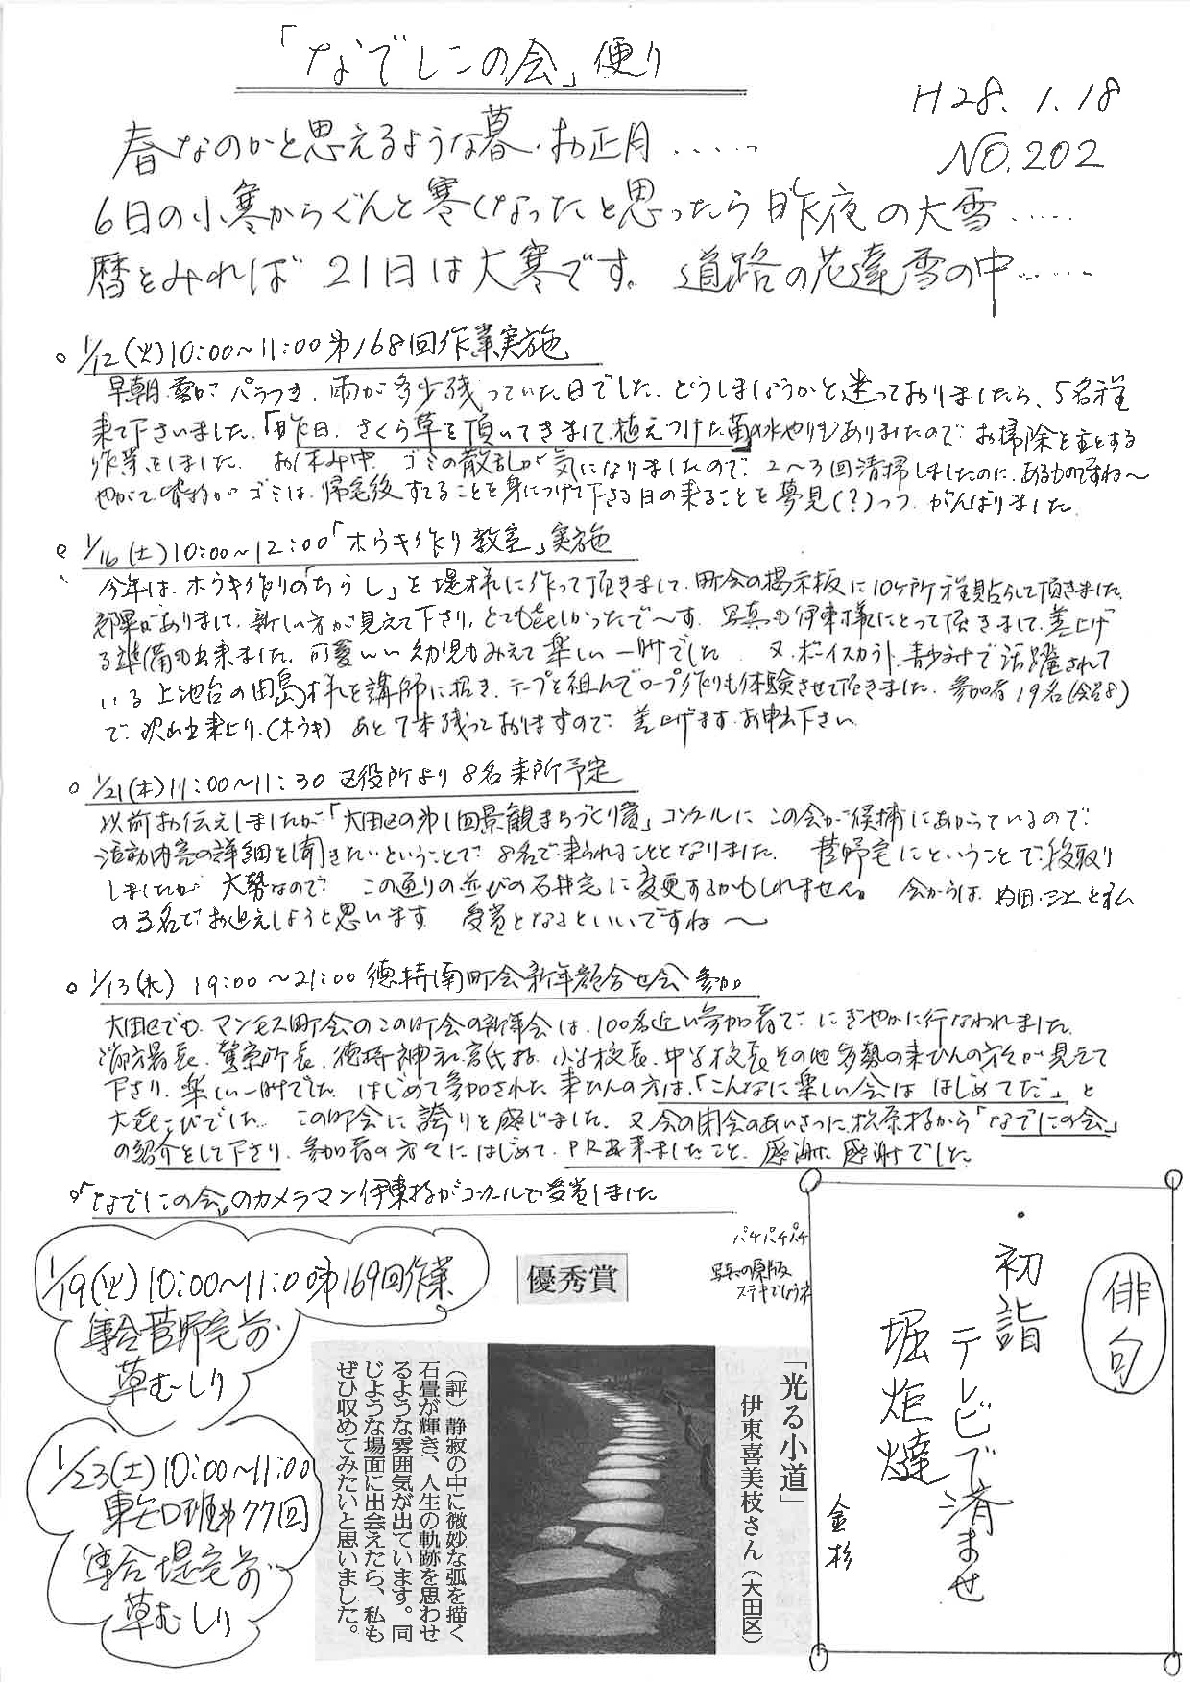 「なでしこの会」便り
H28.1.18
NO.202
春なのかと思えるような暮・お正月・・・・・
6日の小寒からぐんと寒くなったと思ったら昨夜の大雪・・・・・
暦をみれば21日は大寒です。道路の花達雪の中・・・・・
○ 1/12(火)10:00~11:00第168回作業実施
早朝、雪がパラつき、雨が多少残っていた日でした。どうしましょうかと迷っておりましたら、5名程
来て下さいました。「昨日、さくら草を頂いてきまして、植えつけた苗の水やりもありましたので、お掃除を主とする
作業をしました。お休み中、ゴミの散乱が気になりましたので、2~3回清掃しましたのに、あるものですね~
ゴミは、帰宅後すてることを身につけて下さる日の来ることを夢見(?)つつ、がんばりました。
○ 1/16(土)10:00~12:00「ホウキ作り教室」実施
今年は、ホウキ作りの「ちらし」を堤様に作って頂きまして、町会の掲示板に10ヶ所程貼らして頂きました。
効果がありまして、新しい方が見えて下さり、とてもうれしかったで~す。写真も伊東様にとって頂きまして、差上げ
る準備も出来ました。可愛いい幼児もみえて楽しい一時でした。又、ボーイスカウト、青少対で活躍されて
いる上池台の田島様を講師に招き、テープを組んでロープ作りも体験させて頂きました。参加者19名(会員8)
で、沢山出来上り、(ホウキ)あと7本残っておりますので、差上げます。お申出下さい。
○ 1/21(木)11:00~11:30 区役所より8名来所予定
以前お伝えしましたが「大田区の第1回景観まちづくり賞」コンクールにこの会が候補にあがっているので
活動内容の詳細を聞きたいということで8名で来られることとなりました。菅野宅にということで段取り
しましたが大勢なので、この通りの並びの石井宅に変更するかもしれません。会からは、内田・三上と私
の3名でお迎えしようと思います。受賞となるといいですね~
○ 1/13(水) 19:00~21:00 徳持南町会新年顔合せ会参加
大田区でも、マンモス町会のこの町会の新年会は、100名近い参加者で、にぎやかに行なわれました。
消防署長、警察所長、徳持神社宮氏様、小学校長、中学校長その他多勢の来ひんの方々が見えて
下さり、楽しい一時でした。はじめて参加された来ひんの方は、「こんなに楽しい会ははじめてだ」と
大喜こびでした。この町会に誇りを感じました。又会の閉会のあいさつに、松原様から「なでしこの会」
の紹介をして下さり、参加者の方々にはじめて、PR出来ましたこと、感謝、感謝でした。
○「なでしこの会」のカメラマン伊東様がコンクールで受賞しました
1/19(火)10:00~11:00第169回作業
集合菅野宅前
草むしり
1/23(土)10:00~11:00
東矢口班第77回
集合堤宅前
草むしり
優秀賞
パチパチパチ
写真の原版
ステキでしょうネ
「光る小道」
伊東喜美枝さん(大田区)
(評)静寂の中に微妙な弧を描く
石畳が輝き、人生の軌跡を思わせ
るような雰囲気が出ています。同
じような場面に出会えたら、私も
ぜひ収めてみたいと思いました。
俳句
・初詣
テレビで済ませ
堀炬燵
金杉